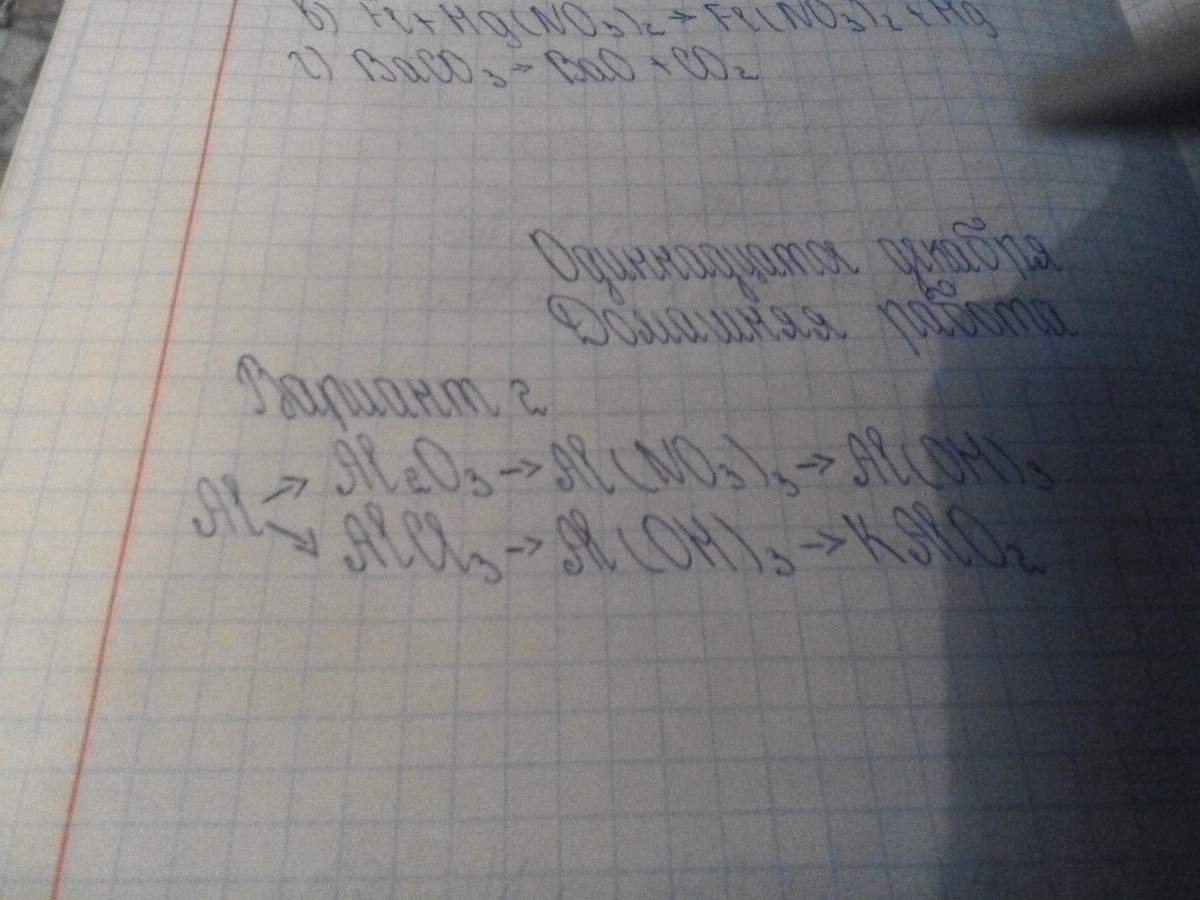 в) Fe + Hg(NO₃)₂ → Fe(NO₃)₂ + Hg
г) BaCO₃ → BaO + CO₂
Одиннадцатое декабря
Домашняя работа
Вариант 2
Al → Al₂O₃ → Al(NO₃)₃ → Al(OH)₃
↘ AlCl₃ → Al(OH)₃ → KAlO₂